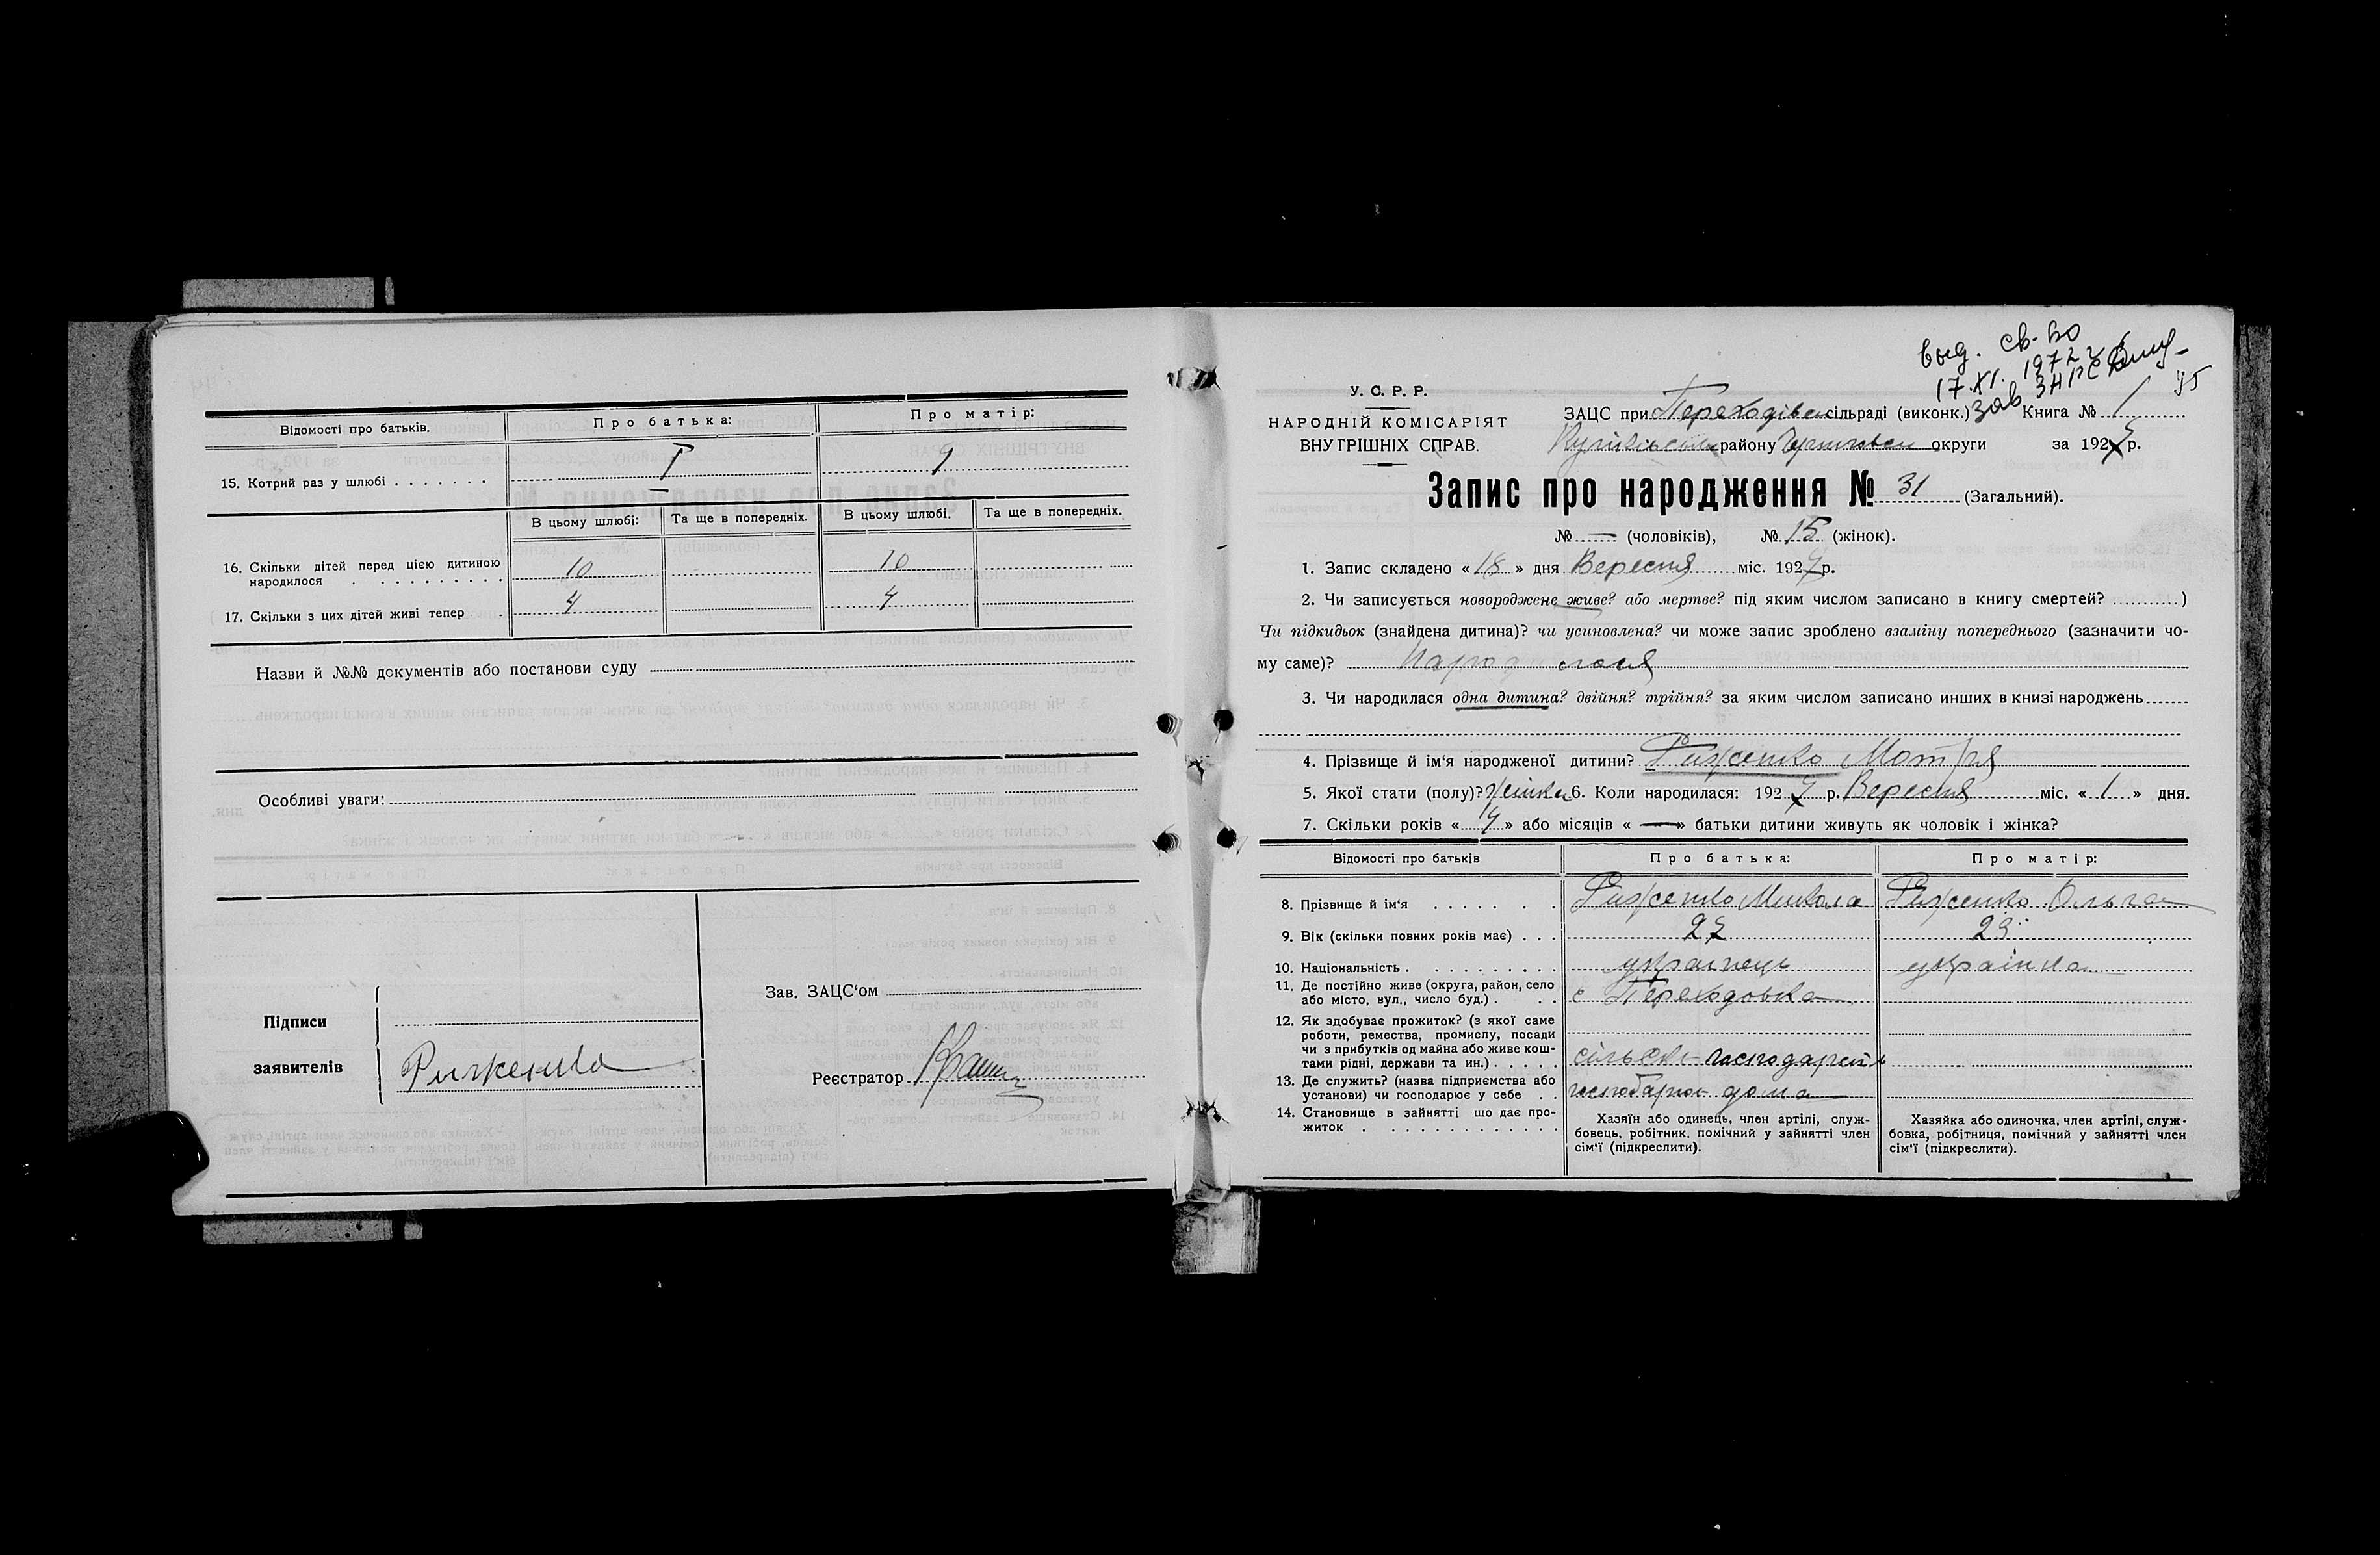 Відомості про батьків. Про батька: Про матір:
15. Котрий раз у шлюбі . . . . . . . I
В цьому шлюбі: Та ще в попередніх. В цьому шлюбі. Та ще в попередніх.
16. Скільки дітей перед цією дитиною
народилося . . . . . . . . . . 10 10
17. Скільки з цих дітей живі тепер . 4 4
Назви й №№ документів або постанови суду
Особливі уваги:
Підписи
заявителів
Зав. ЗАЦС'ом
Реєстратор
выд. св-во
17.XI. 1972 г.
Зав ЗАГС
У. С. Р. Р.
НАРОДНІЙ КОМІСАРІЯТ
ВНУТРІШНІХ СПРАВ.
ЗАЦС при Переходівск сільраді (виконк.) Книга № 1
району округи за 1927 р.
Запис про народження № 31 (Загальний).
№ — (чоловіків), № 15 (жінок).
1. Запис складено « 18 » дня Вересня міс. 1927 р.
2. Чи записується новороджене живе? або мертве? під яким числом записано в книгу смертей? ...........)
Чи підкидьок (знайдена дитина)? чи усиновлена? чи може запис зроблено взаміну попереднього (зазначити чо-
му саме)?
3. Чи народилася одна дитина? двійня? трійня? за яким числом записано инших в книзі народжень
4. Прізвище й ім'я народженої дитини? Риженко Мотря
5. Якої стати (полу)? Жіноч 6. Коли народилася: 1927 р. Вересня міс. « 1 » дня.
7. Скільки років « » або місяців « — » батьки дитини живуть як чоловік і жінка?
Відомості про батьків Про батька: Про матір:
8. Прізвище й ім'я . . . . . . . Риженко Микола Риженко Ольга
9. Вік (скільки повних років має) . . . 27 23
10. Національність . . . . . . . . . . українець українка
11. Де постійно живе (округа, район, село
або місто, вул., число буд.) . . . с Переходовка
12. Як здобуває прожиток? (з якої саме
роботи, ремества, промислу, посади
чи з прибутків од майна або живе кош-
тами рідні, держави та ин.) . . . . .
13. Де служить? (назва підприємства або
установи) чи господарює у себе . . дома
14. Становище в зайнятті що дає про-
житок . . . . . . . . . . . . . .
Хазяїн або одинець, член артілі, служ-
бовець, робітник, помічний у зайнятті член
сім'ї (підкреслити).
Хазяйка або одиночка, член артілі, служ-
бовка, робітниця, помічний у зайнятті член
сім'ї (підкреслити).